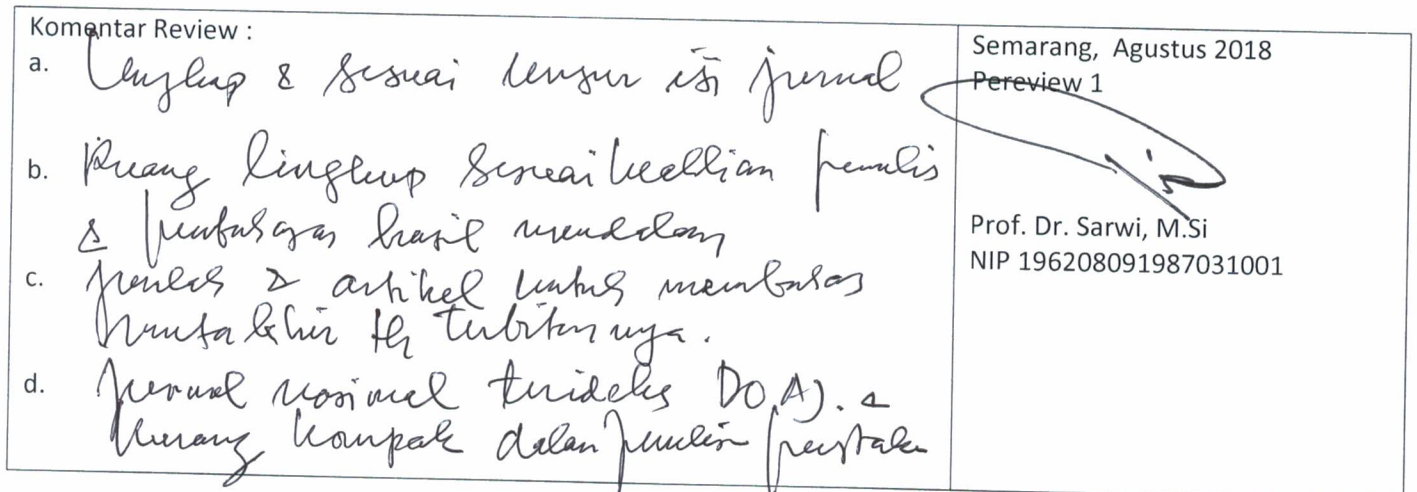 Komentar Review :
a. Lengkap & sesuai unsur isi jurnal
b. Ruang lingkup sesuai keahlian penulis
& pembahasan hasil mendalam
c. Jumlah artikel untuk membahas
mutakhir th terbitannya.
d. Jurnal nasional terideks DOAJ. &
kurang kompak dalam penulisan pustaka
Semarang, Agustus 2018
Pereview 1
Prof. Dr. Sarwi, M.Si
NIP 196208091987031001